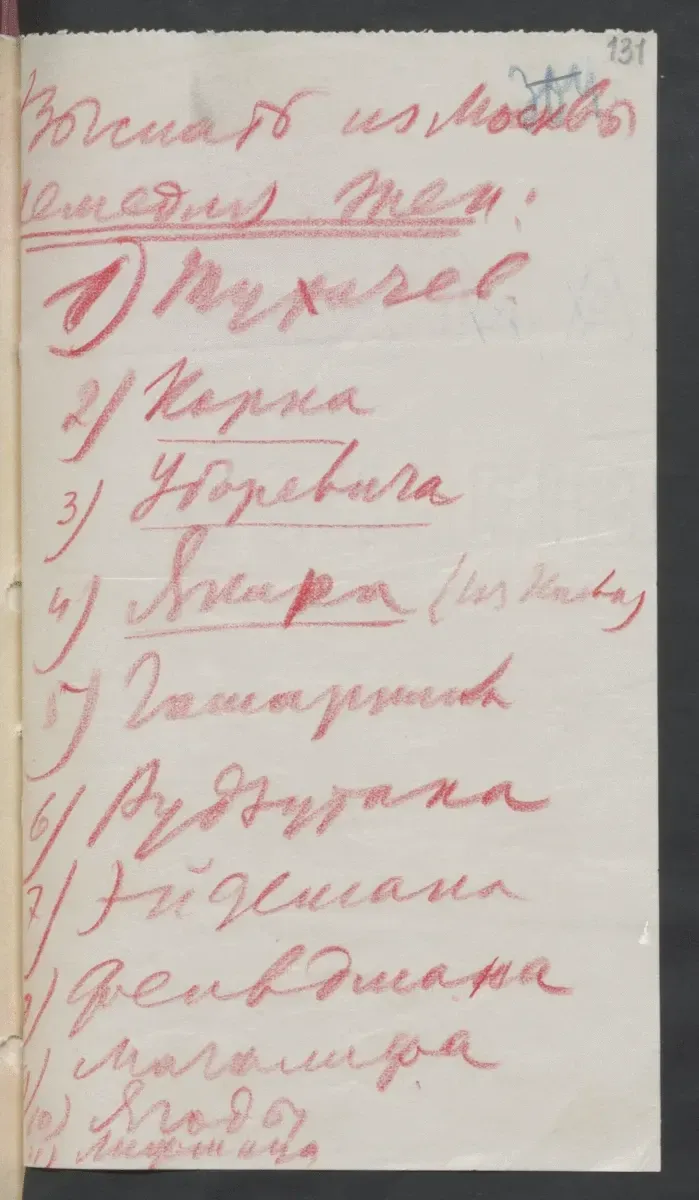 131
Выслать из Москвы
немедля жен:
1) Тухачев.
2) Корка
3) Уборевича
4) Якира (из Киева)
5) Гамарник
6) Рудзутака
7) Эйдемана
8) Фельдмана
9) Маголифа
10) Ягоды
11)